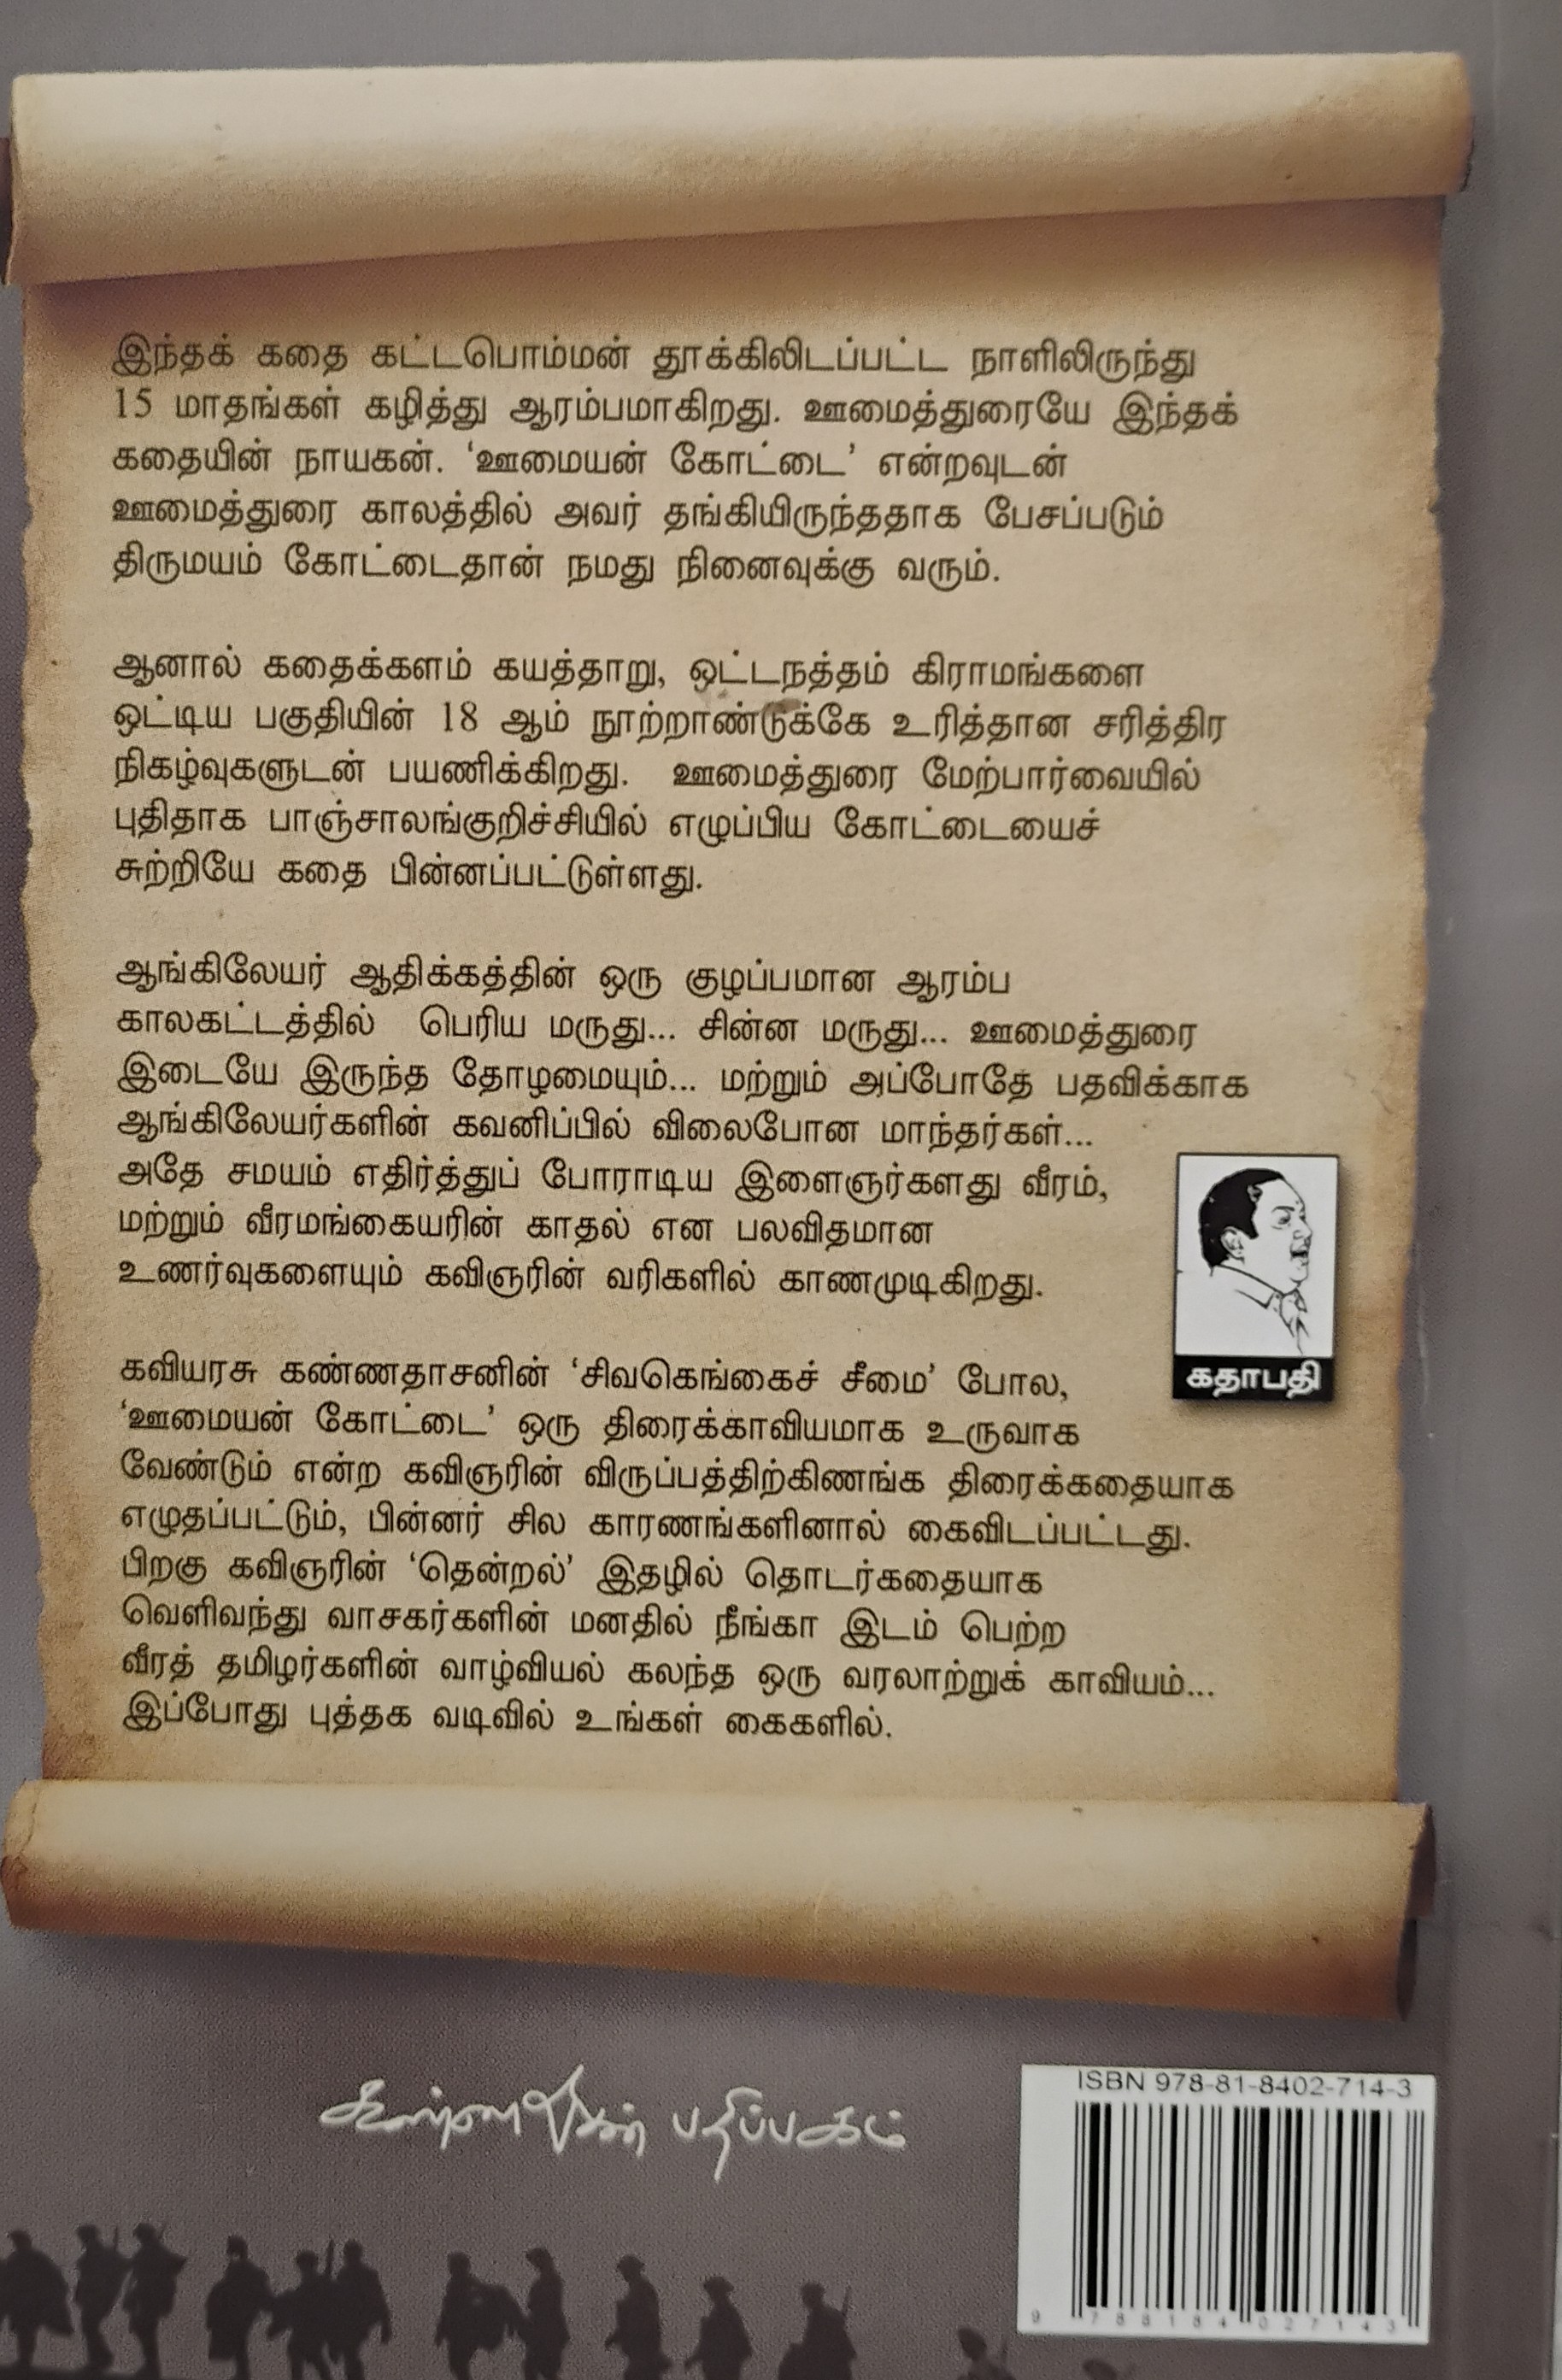 இந்தக் கதை கட்டபொம்மன் தூக்கிலிடப்பட்ட நாளிலிருந்து
15 மாதங்கள் கழித்து ஆரம்பமாகிறது. ஊமைத்துரையே இந்தக்
கதையின் நாயகன். ‘ஊமையன் கோட்டை’ என்றவுடன்
ஊமைத்துரை காலத்தில் அவர் தங்கியிருந்ததாக பேசப்படும்
திருமயம் கோட்டைதான் நமது நினைவுக்கு வரும்.
ஆனால் கதைக்களம் கயத்தாறு, ஒட்டநத்தம் கிராமங்களை
ஒட்டிய பகுதியின் 18 ஆம் நூற்றாண்டுக்கே உரித்தான சரித்திர
நிகழ்வுகளுடன் பயணிக்கிறது. ஊமைத்துரை மேற்பார்வையில்
புதிதாக பாஞ்சாலங்குறிச்சியில் எழுப்பிய கோட்டையைச்
சுற்றியே கதை பின்னப்பட்டுள்ளது.
ஆங்கிலேயர் ஆதிக்கத்தின் ஒரு குழப்பமான ஆரம்ப
காலகட்டத்தில் பெரிய மருது... சின்ன மருது... ஊமைத்துரை
இடையே இருந்த தோழமையும்... மற்றும் அப்போதே பதவிக்காக
ஆங்கிலேயர்களின் கவனிப்பில் விலைபோன மாந்தர்கள்...
அதே சமயம் எதிர்த்துப் போராடிய இளைஞர்களது வீரம்,
மற்றும் வீரமங்கையரின் காதல் என பலவிதமான
உணர்வுகளையும் கவிஞரின் வரிகளில் காணமுடிகிறது.
கதாபதி
கவியரசு கண்ணதாசனின் ‘சிவகெங்கைச் சீமை’ போல,
‘ஊமையன் கோட்டை’ ஒரு திரைக்காவியமாக உருவாக
வேண்டும் என்ற கவிஞரின் விருப்பத்திற்கிணங்க திரைக்கதையாக
எழுதப்பட்டும், பின்னர் சில காரணங்களினால் கைவிடப்பட்டது.
பிறகு கவிஞரின் ‘தென்றல்’ இதழில் தொடர்கதையாக
வெளிவந்து வாசகர்களின் மனதில் நீங்கா இடம் பெற்ற
வீரத் தமிழர்களின் வாழ்வியல் கலந்த ஒரு வரலாற்றுக் காவியம்...
இப்போது புத்தக வடிவில் உங்கள் கைகளில்.
கண்ணதாசன் பதிப்பகம்
ISBN 978-81-8402-714-3
9 788184 027143